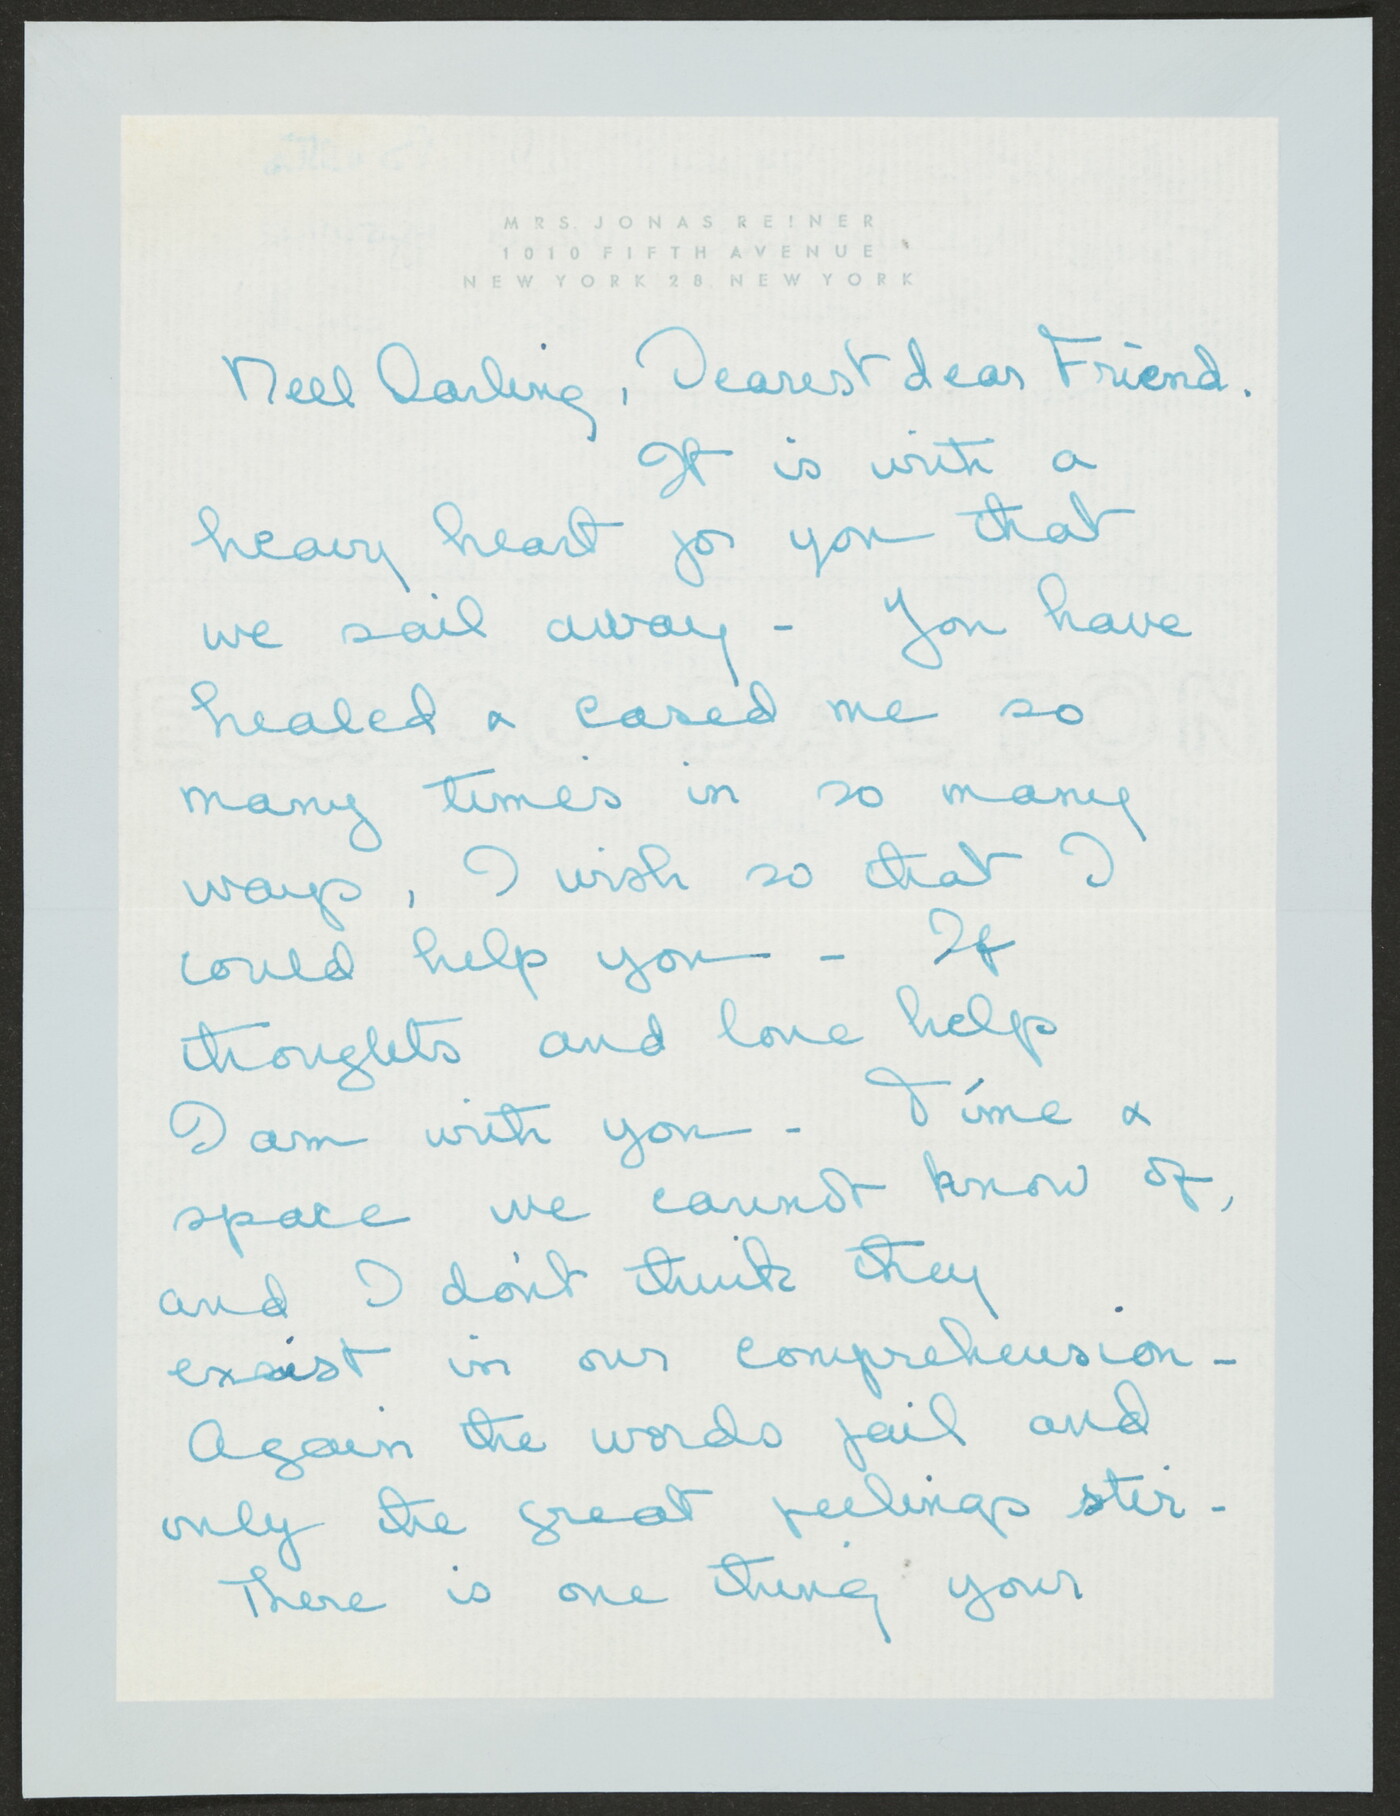 MRS. JONAS REINER
1010 FIFTH AVENUE
NEW YORK 28, NEW YORK
Nell Darling, Dearest dear Friend.
It is with a
heavy heart for you that
we sail away - You have
healed & eased me so
many times in so many
ways, I wish so that I
could help you - If
thoughts and love help
I am with you - Time &
space we cannot know of,
and I don't think they
exist in our comprehension -
Again the words fail and
only the great feelings stir -
There is one thing your